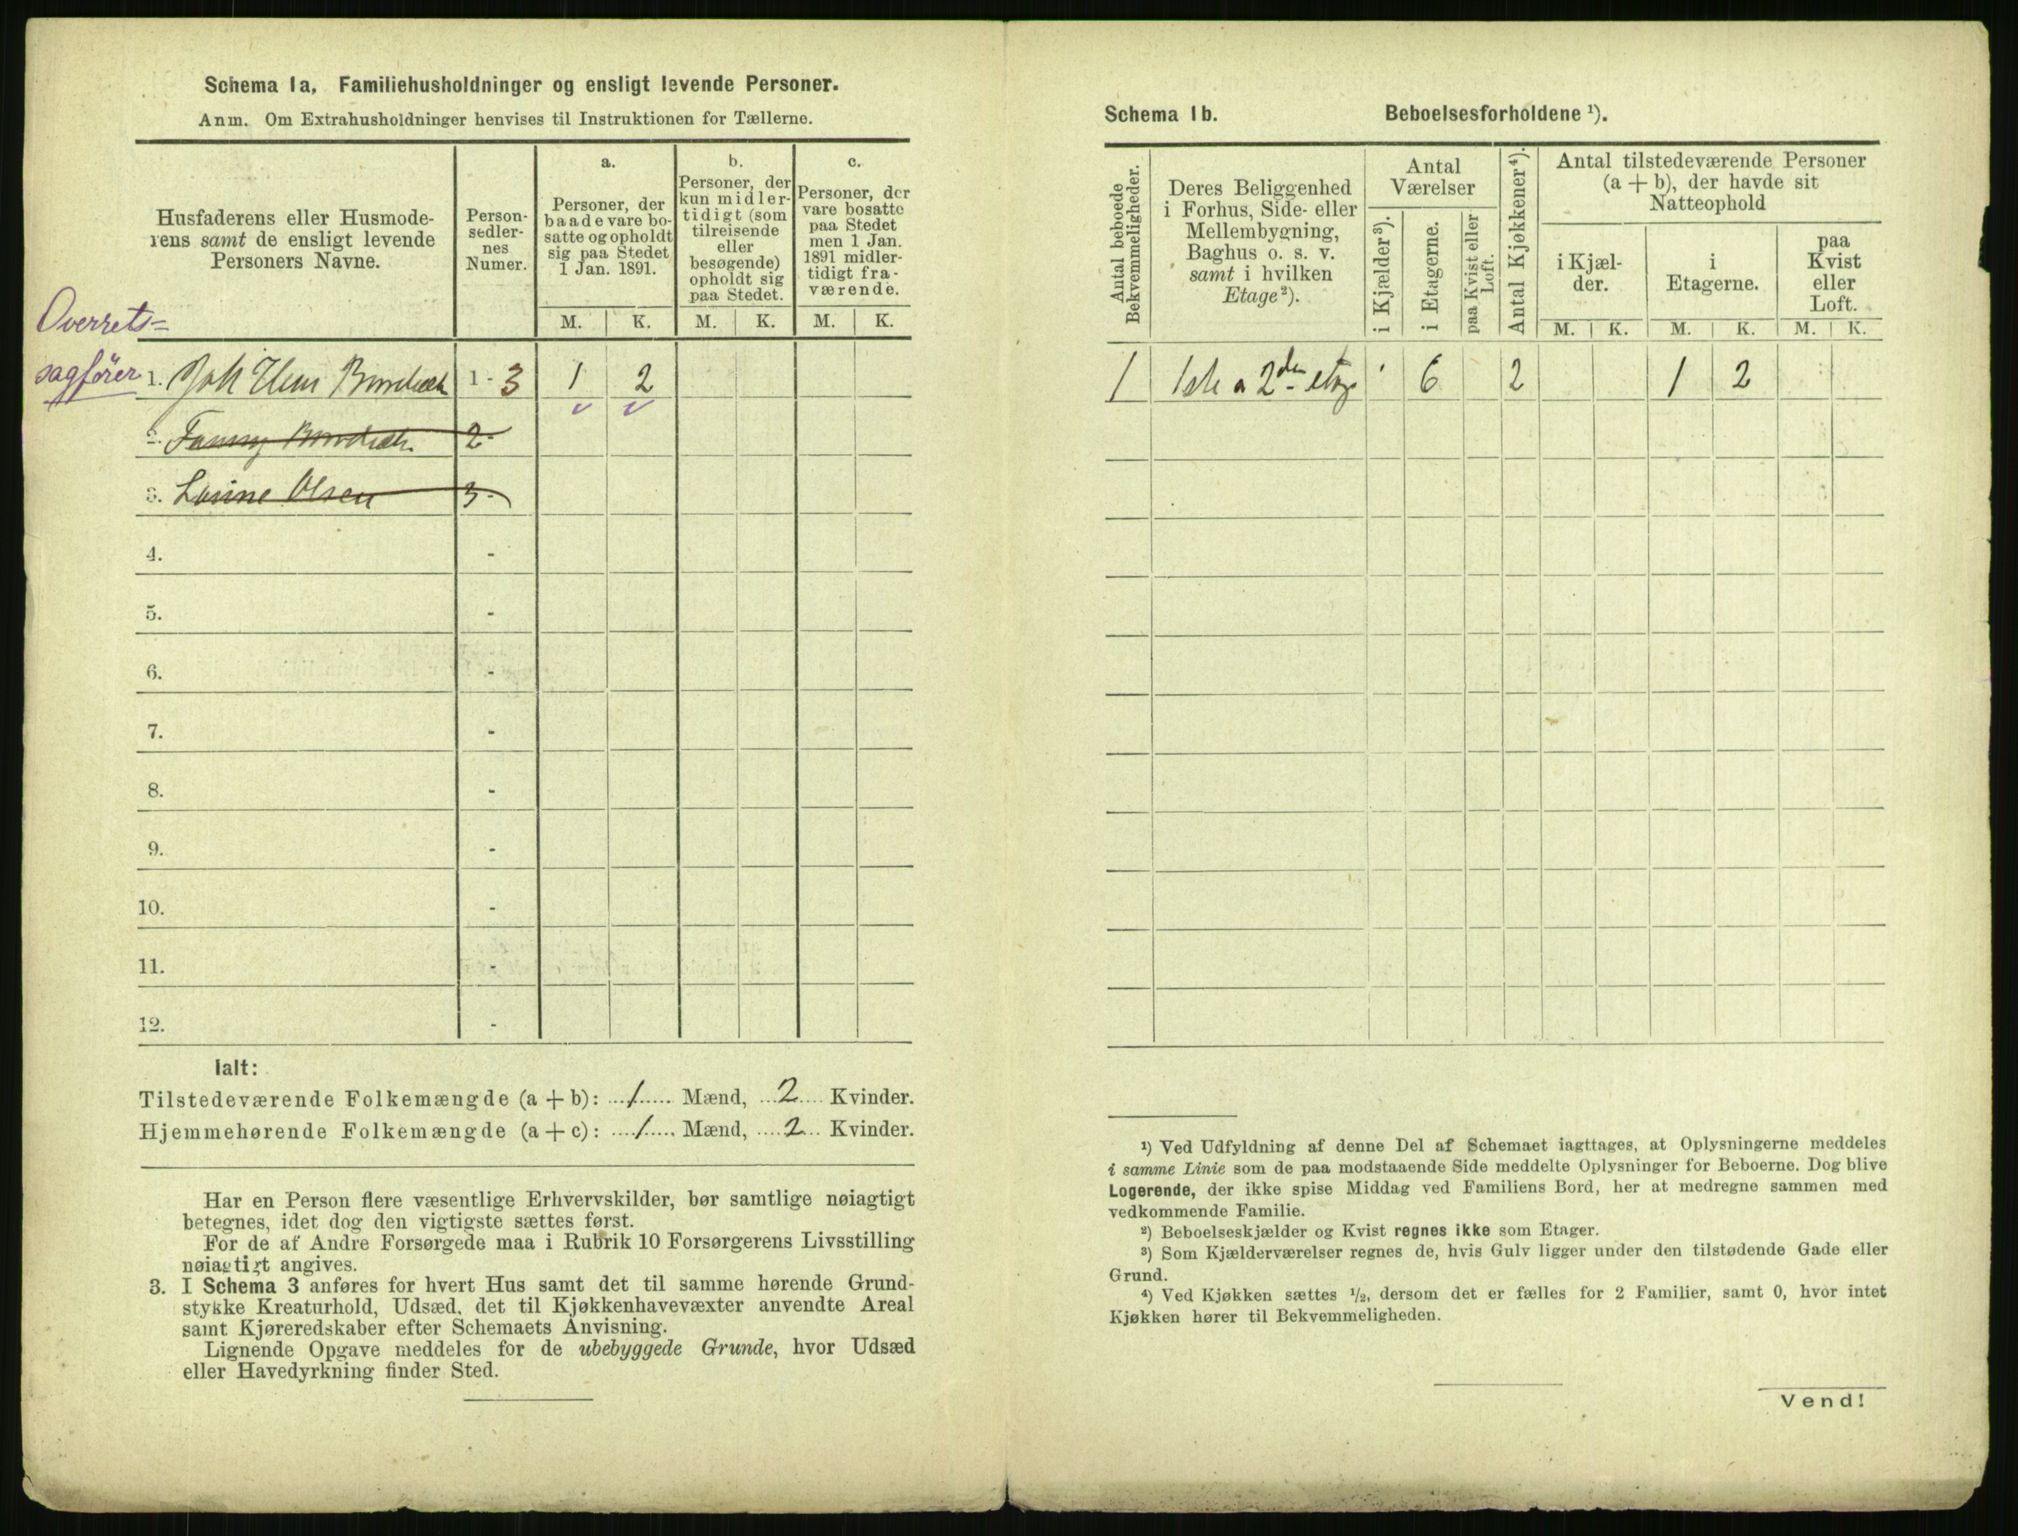 Schema 1a. Familiehusholdninger og ensligt levende Personer.
Anm. Om Extrahusholdninger henvises til Instruktionen for Tællerne.
Husfaderens eller Husmode-
rens samt de ensligt levende
Personers Navne.
Person-
sedler-
nes
Numer.
a.
Personer, der
baade vare bo-
satte og opholdt
sig paa Stedet
1 Jan. 1891.
b.
Personer, der
kun midler-
tidigt (som
tilreisende
eller
besøgende)
opholdt sig
paa Stedet.
c.
Personer, der
vare bosatte
paa Stedet
men 1 Jan.
1891 midler-
tidigt fra-
værende.
M. K. M. K. M. K.
Overrets=
sagfører
1. 1 - 3 1 2
2. Fanny 2 -
3. Lovine Olsen 3 -
4. -
5. -
6. -
7. -
8. -
9. -
10. -
11. -
12. -
Ialt:
Tilstedeværende Folkemængde (a + b): 1 Mænd, 2 Kvinder.
Hjemmehørende Folkemængde (a + c): 1 Mænd, 2 Kvinder.
Har en Person flere væsentlige Erhvervskilder, bør samtlige nøiagtigt
betegnes, idet dog den vigtigste sættes først.
For de af Andre Forsørgede maa i Rubrik 10 Forsørgerens Livsstilling
nøiagtigt angives.
3. I Schema 3 anføres for hvert Hus samt det til samme hørende Grund-
stykke Kreaturhold, Udsæd, det til Kjøkkenhavevæxter anvendte Areal
samt Kjøreredskaber efter Schemaets Anvisning.
Lignende Opgave meddeles for de ubebyggede Grunde, hvor Udsæd
eller Havedyrkning finder Sted.
Schema 1b. Beboelsesforholdene ¹).
Antal beboede
Bekvemmeligheder.
Deres Beliggenhed
i Forhus, Side- eller
Mellembygning,
Baghus o. s. v.
samt i hvilken
Etage²).
Antal
Værelser
i Kjælder³).
i Etagerne.
paa Kvist eller
Loft.
Antal Kjøkkener⁴).
Antal tilstedeværende Personer
(a + b), der havde sit
Natteophold
i Kjæl-
der.
i
Etagerne.
paa
Kvist
eller
Loft.
M. K. M. K. M. K.
1 1ste a 2den etage 6 2 1 2
¹) Ved Udfyldning af denne Del af Schemaet iagttages, at Oplysningerne meddeles
i samme Linie som de paa modstaaende Side meddelte Oplysninger for Beboerne. Dog blive
Logerende, der ikke spise Middag ved Familiens Bord, her at medregne sammen med
vedkommende Familie.
²) Beboelseskjælder og Kvist regnes ikke som Etager.
³) Som Kjælderværelser regnes de, hvis Gulv ligger under den tilstødende Gade eller
Grund.
⁴) Ved Kjøkken sættes ½, dersom det er fælles for 2 Familier, samt 0, hvor intet
Kjøkken hører til Bekvemmeligheden.
Vend!